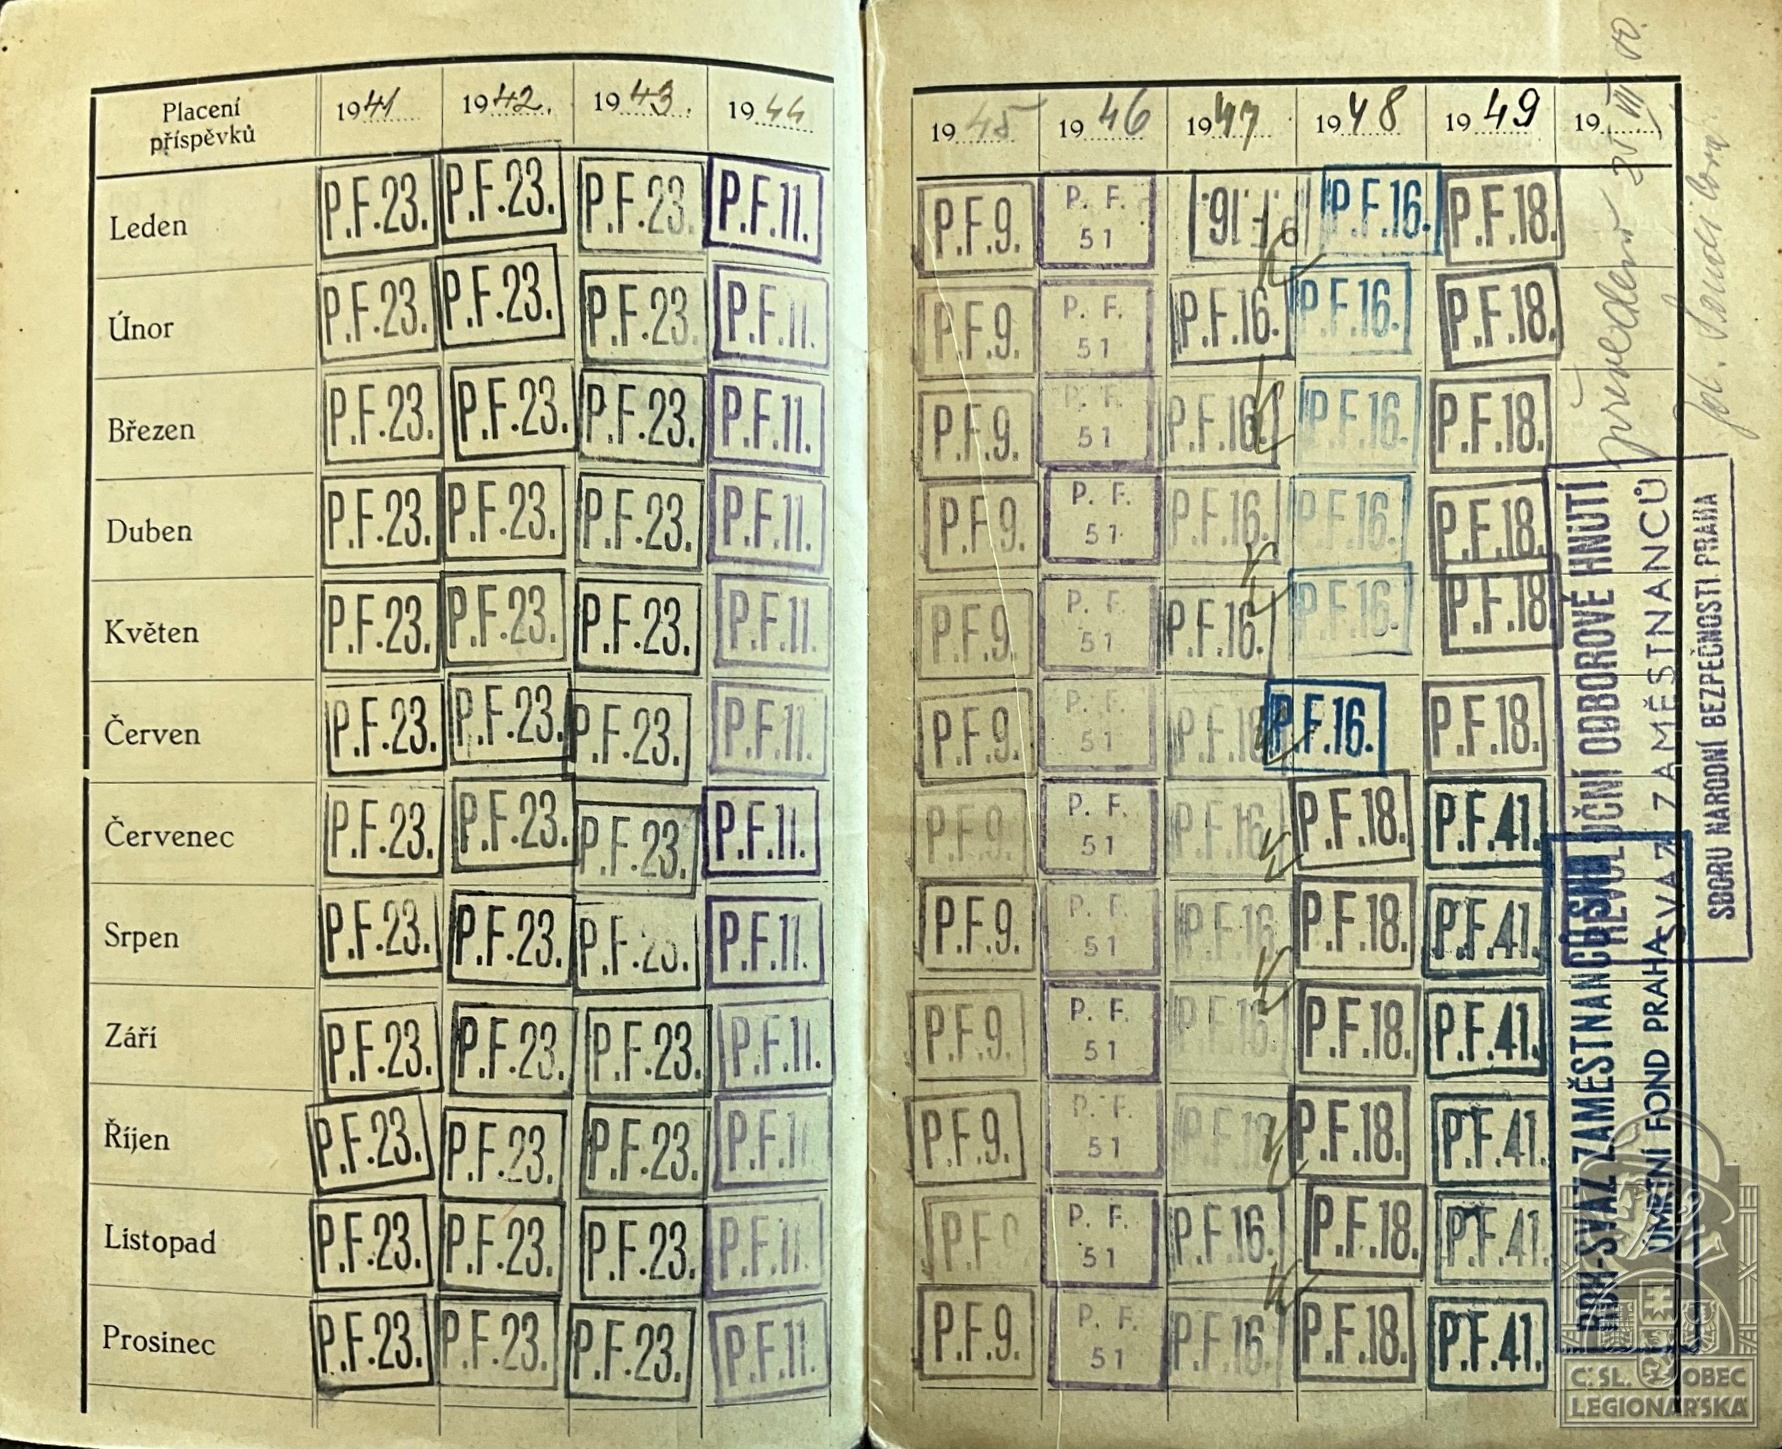 Placení příspěvků 1941 1942. 1943. 1944 1945 1946 1947 1948 1949 19
Leden P.F.23. P.F.23. P.F.23. P.F.11. P.F.9. P. F. 51 P.F.16. P.F.16. P.F.18.
Únor P.F.23. P.F.23. P.F.23. P.F.11. P.F.9. P. F. 51 P.F.16. P.F.16. P.F.18.
Březen P.F.23. P.F.23. P.F.23. P.F.11. P.F.9. P. F. 51 P.F.16. P.F.16. P.F.18.
Duben P.F.23. P.F.23. P.F.23. P.F.11. P.F.9. P. F. 51 P.F.16. P.F.16. P.F.18.
Květen P.F.23. P.F.23. P.F.23. P.F.11. P.F.9. P. F. 51 P.F.16. P.F.16. P.F.18
Červen P.F.23. P.F.23. P.F.23. P.F.11. P.F.9. P. F. 51 P.F.16 P.F.16. P.F.18.
Červenec P.F.23. P.F.23. P.F.23. P.F.11. P.F.9. P. F. 51 P.F.16 P.F.18. P.F.41.
Srpen P.F.23. P.F.23. P.F.23. P.F.11. P.F.9. P. F. 51 P.F.16 P.F.18. P.F.41.
Září P.F.23. P.F.23. P.F.23. P.F.11. P.F.9. P. F. 51 P.F.16 P.F.18. P.F.41.
Říjen P.F.23. P.F.23. P.F.23. P.F.11 P.F.9. P. F. 51 P.F.16 P.F.18. P.F.41.
Listopad P.F.23. P.F.23. P.F.23. P.F.11. P.F.9 P. F. 51 P.F.16. P.F.18. P.F.41.
Prosinec P.F.23. P.F.23. P.F.23. P.F.11. P.F.9. P. F. 51 P.F.16. P.F.18. P.F.41.
převeden
REVOLUČNÍ ODBOROVÉ HNUTÍ
SVAZ ZAMĚSTNANCŮ
SBORU NÁRODNÍ BEZPEČNOSTI PRAHA
ROH-SVAZ ZAMĚSTNANCŮ SNB
ÚMRTNÍ FOND PRAHA
ČSL. OBEC
LEGIONÁŘSKÁ